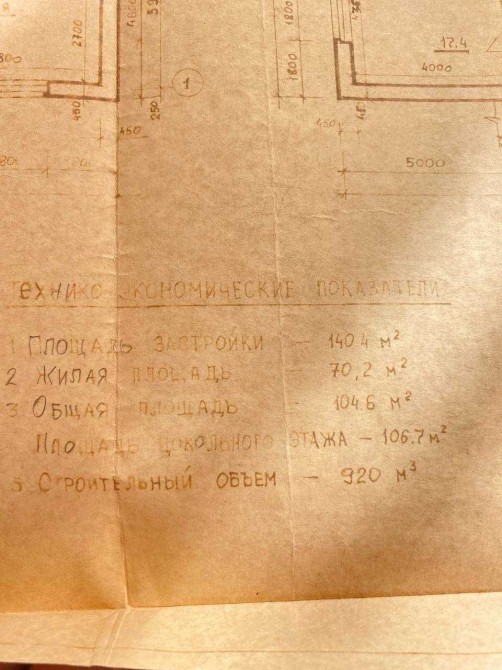 2700
450
450
4800
250
1
1800
1800
17.4
4000
450
5000
ТЕХНИКО ЭКОНОМИЧЕСКИЕ ПОКАЗАТЕЛИ
1 ПЛОЩАДЬ ЗАСТРОЙКИ – 140.4 м²
2 ЖИЛАЯ ПЛОЩАДЬ – 70,2 м²
3 ОБЩАЯ ПЛОЩАДЬ – 104.6 м²
ПЛОЩАДЬ ЦОКОЛЬНОГО ЭТАЖА – 106.7 м²
5 СТРОИТЕЛЬНЫЙ ОБЪЕМ – 920 м³